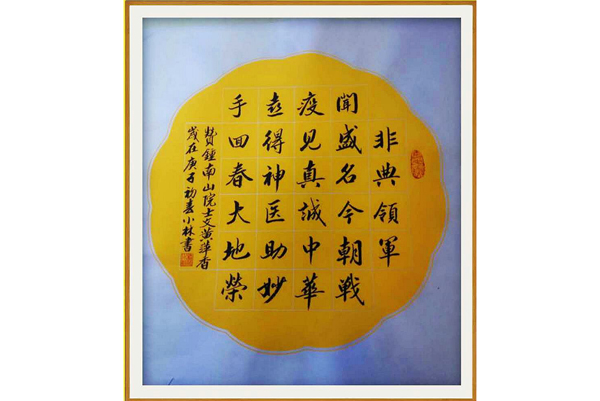 非典領軍
聞盛名今朝戰
疫见真誠中華
喜得神医助妙
手回春大地榮
贊鍾南山院士文黄萍香
歲在庚子初春小林書